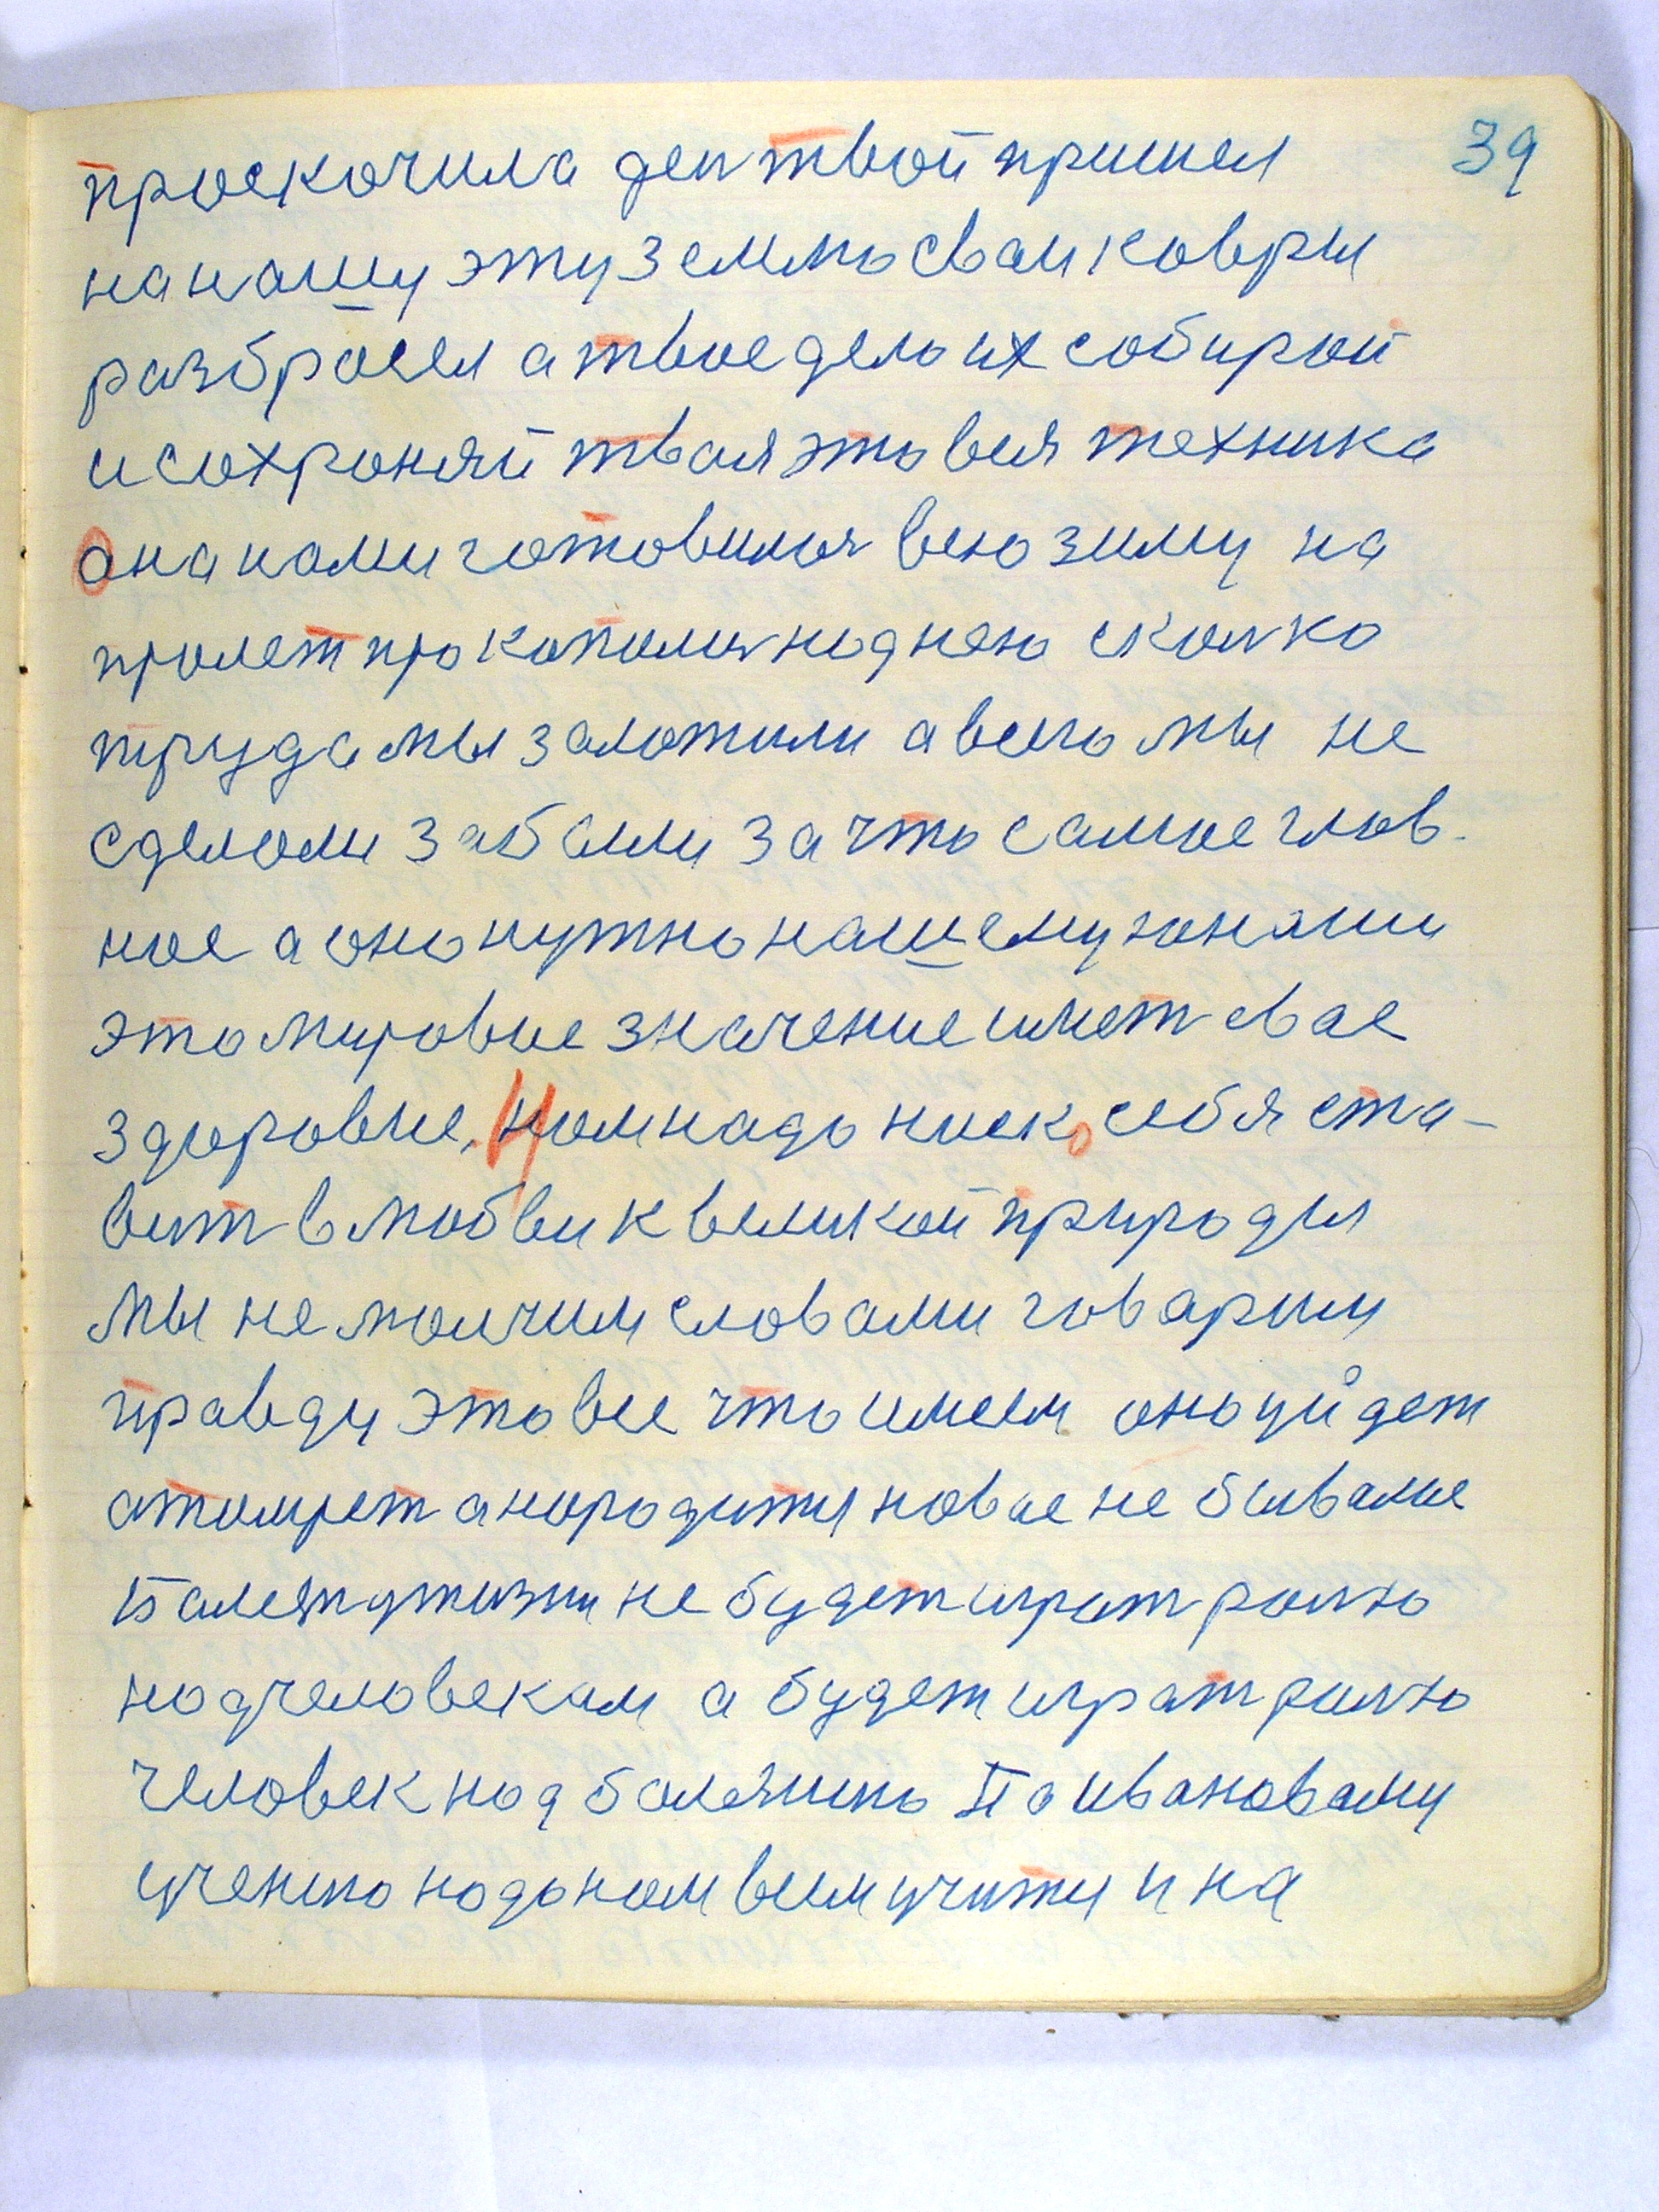 39
проскочила ден твой пришел
на нашу эту землю сваи ковры
разбросел а твое дело их собирой
и сохроняй твая это вся техника
она нами готовилыя всю зиму на
пролет прокополиь нод нею сколко
труда мы заложили а всего мы не
сделоли забыли за что самое глов-
ное а оно нужно нашему юнаши
это мировое значение имет свае
здоровие, Ном надо ниско себя ста-
вит в любви к великой природы
мы не молчим словами говарим
правду это все что имеем оно уйдет
атомрет а народится новае не бывалое
Балезн жизни не будет играт ролю
нод человекам а будет играт ролю
человек нод болезнию По ивановаму
учению нодо ном всем учится и на